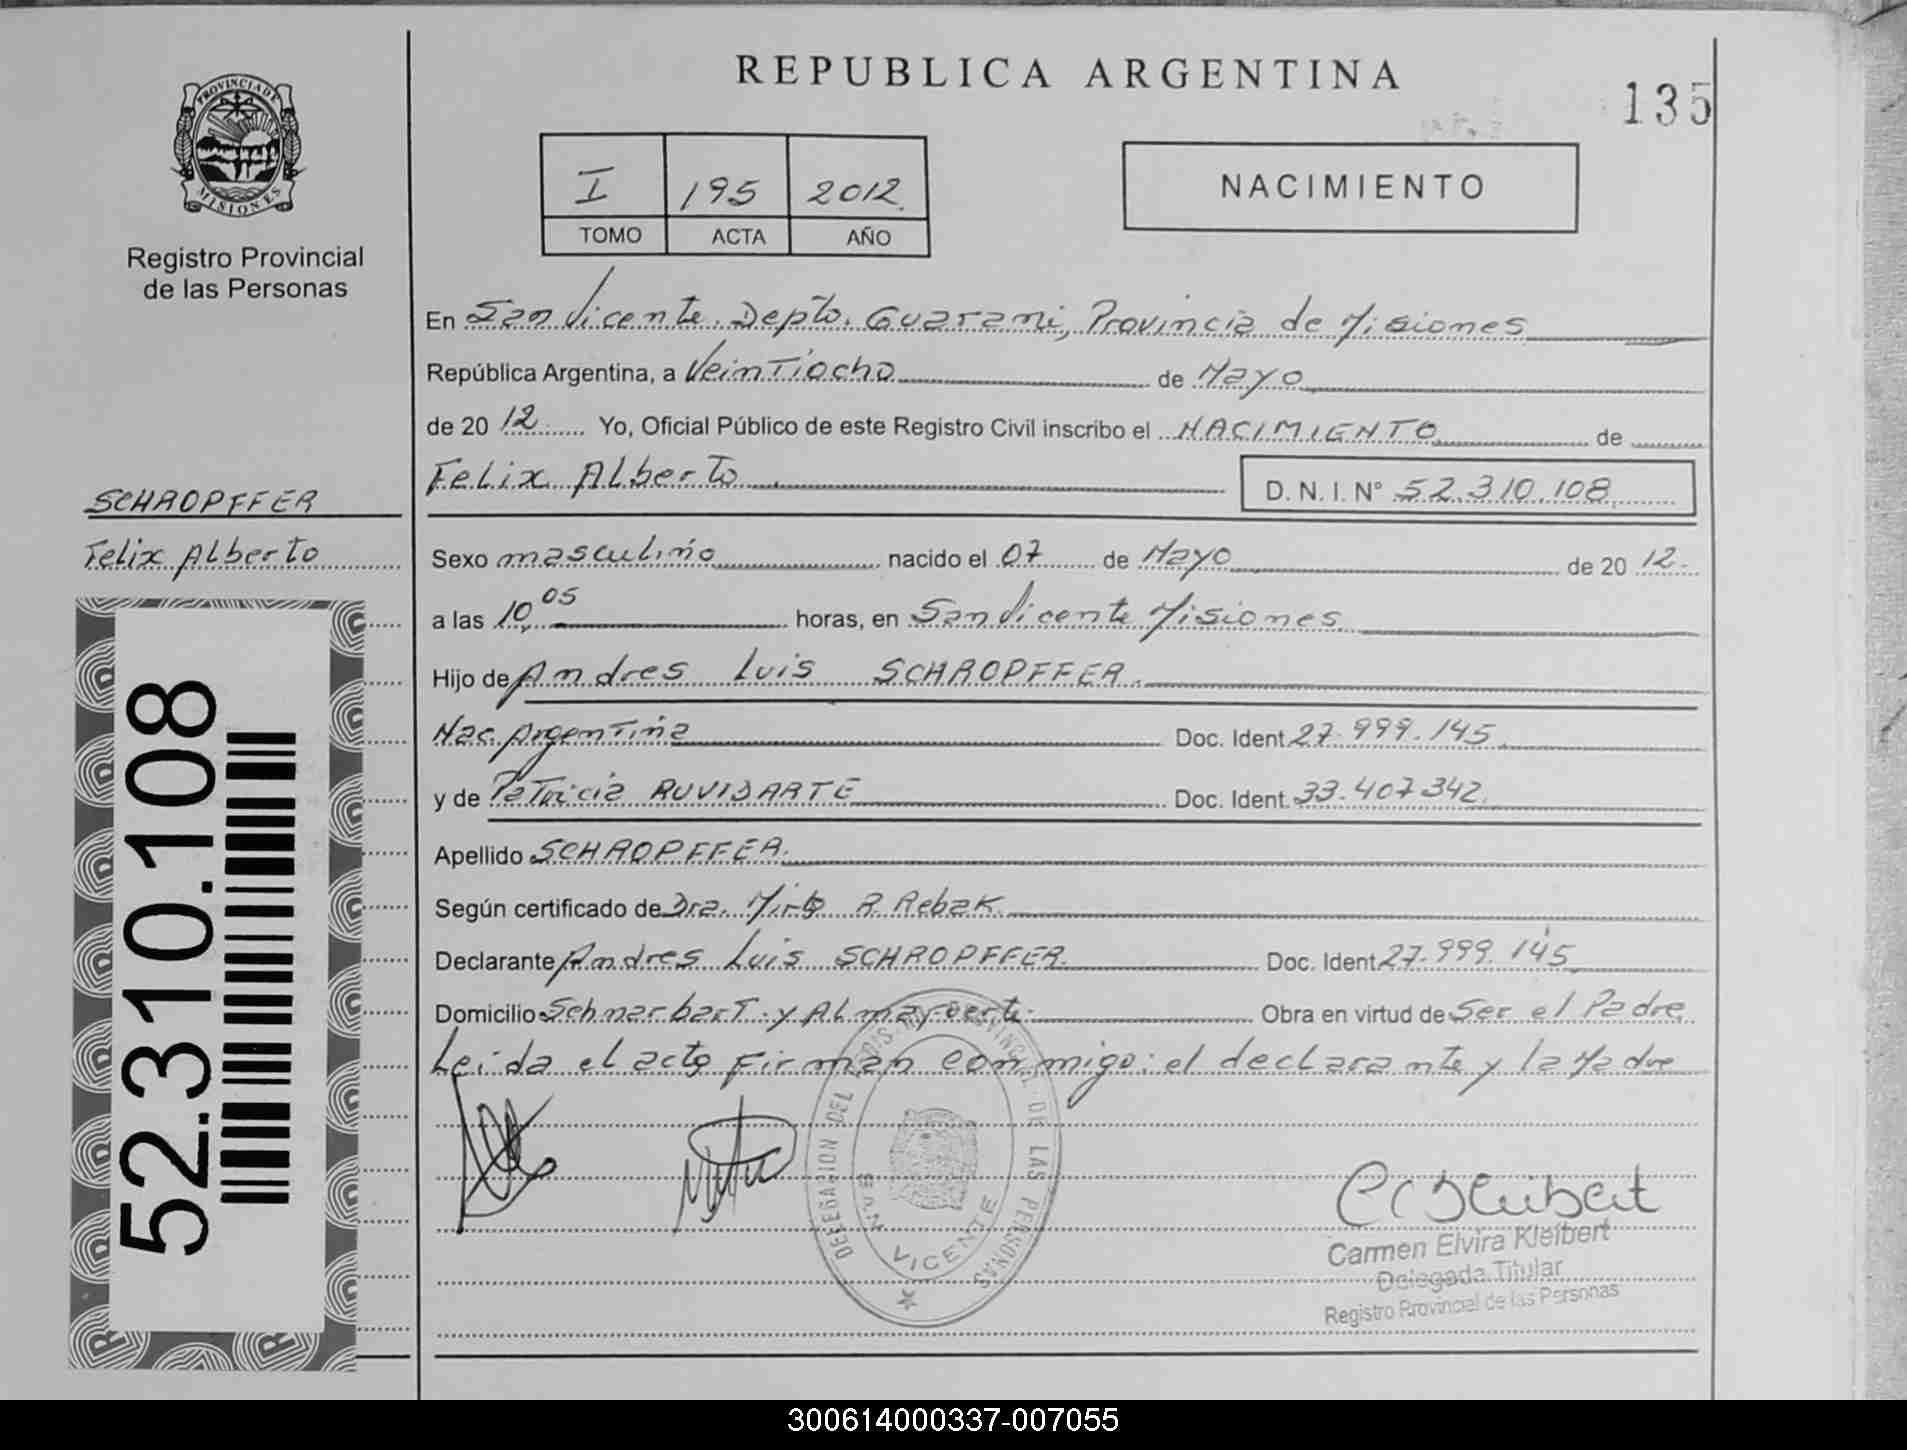 REPUBLICA ARGENTINA
135
PROVINCIA DE
MISIONES
Registro Provincial
de las Personas
I 195 2012.
TOMO ACTA AÑO
NACIMIENTO
En San Vicente. Depto. Guarani, Provincia de Misiones
República Argentina, a Veintiocho de Mayo
de 20 12 Yo, Oficial Público de este Registro Civil inscribo el NACIMIENTO de
Felix Alberto D.N.I. N° 52.310.108
SCHROPFFER
Felix Alberto
Sexo masculino nacido el 07 de Mayo de 20 12.
a las 10,05 horas, en San Vicente Misiones
Hijo de Andres Luis SCHROPFFER.
Nac. Argentina Doc. Ident. 27.999.145
y de Patricia RUVIDARTE Doc. Ident. 33.407.342.
Apellido SCHROPFFER.
Según certificado de Dra. Mirta R. Rebak.
Declarante Andres Luis SCHROPFFER. Doc. Ident. 27.999.145
Domicilio Schnarbart y Almafuerte. Obra en virtud de Ser el Padre
Leida el acta firman conmigo: el declarante y la Madre
52.310.108
DELEGACION DEL REGISTRO PROVINCIAL DE LAS PERSONAS
SAN VICENTE
Carmen Elvira Kleibert
Delegada Titular
Registro Provincial de las Personas
300614000337-007055